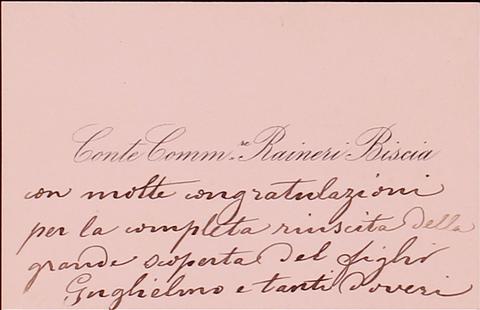 Conte Comm.re Raineri Biscia
con molte congratulazioni
per la completa riuscita della
grande scoperta del figlio
Guglielmo e tanti doveri